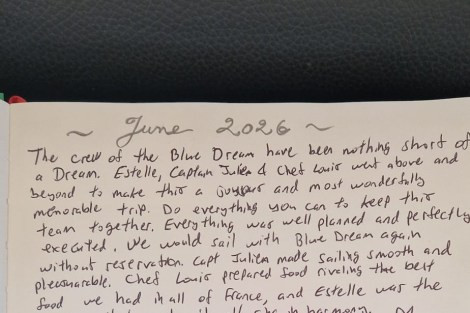 ~ June 2026 ~
The crew of the Blue Dream have been nothing short of
a Dream. Estelle, Captain Julien & Chef Louis went above and
beyond to make this a joyous and most wonderfully
memorable trip. Do everything you can to keep this
team together. Everything was well planned and perfectly
executed. We would sail with Blue Dream again
without reservation. Capt Julien made sailing smooth and
pleasurable. Chef Louis prepared food rivaling the best
food we had in all of France, and Estelle was the